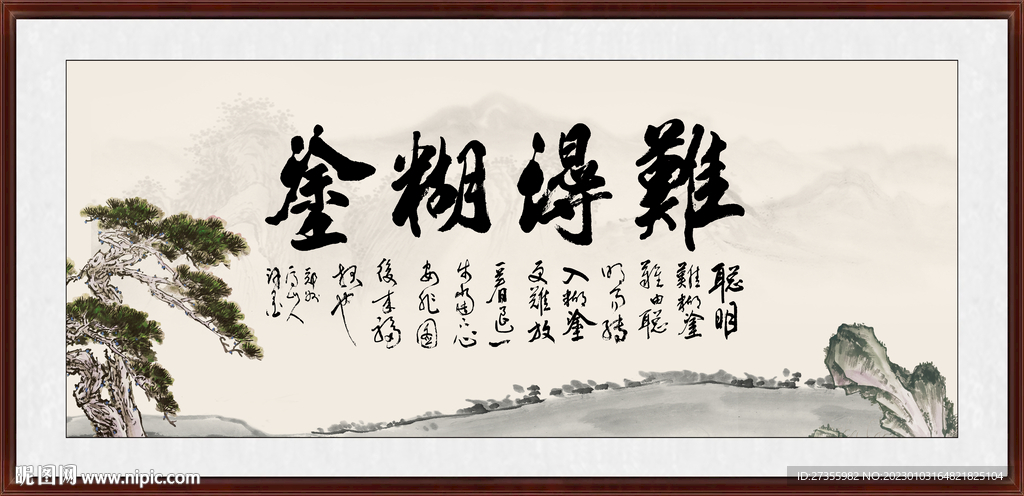 難得糊塗
聰明
難糊塗
難由聰
明而轉
入糊塗
更難放
一着退一
步當下心
安非圖
後來福
報也
昵图网 www.nipic.com
ID:27355982 NO:20230103164821825104